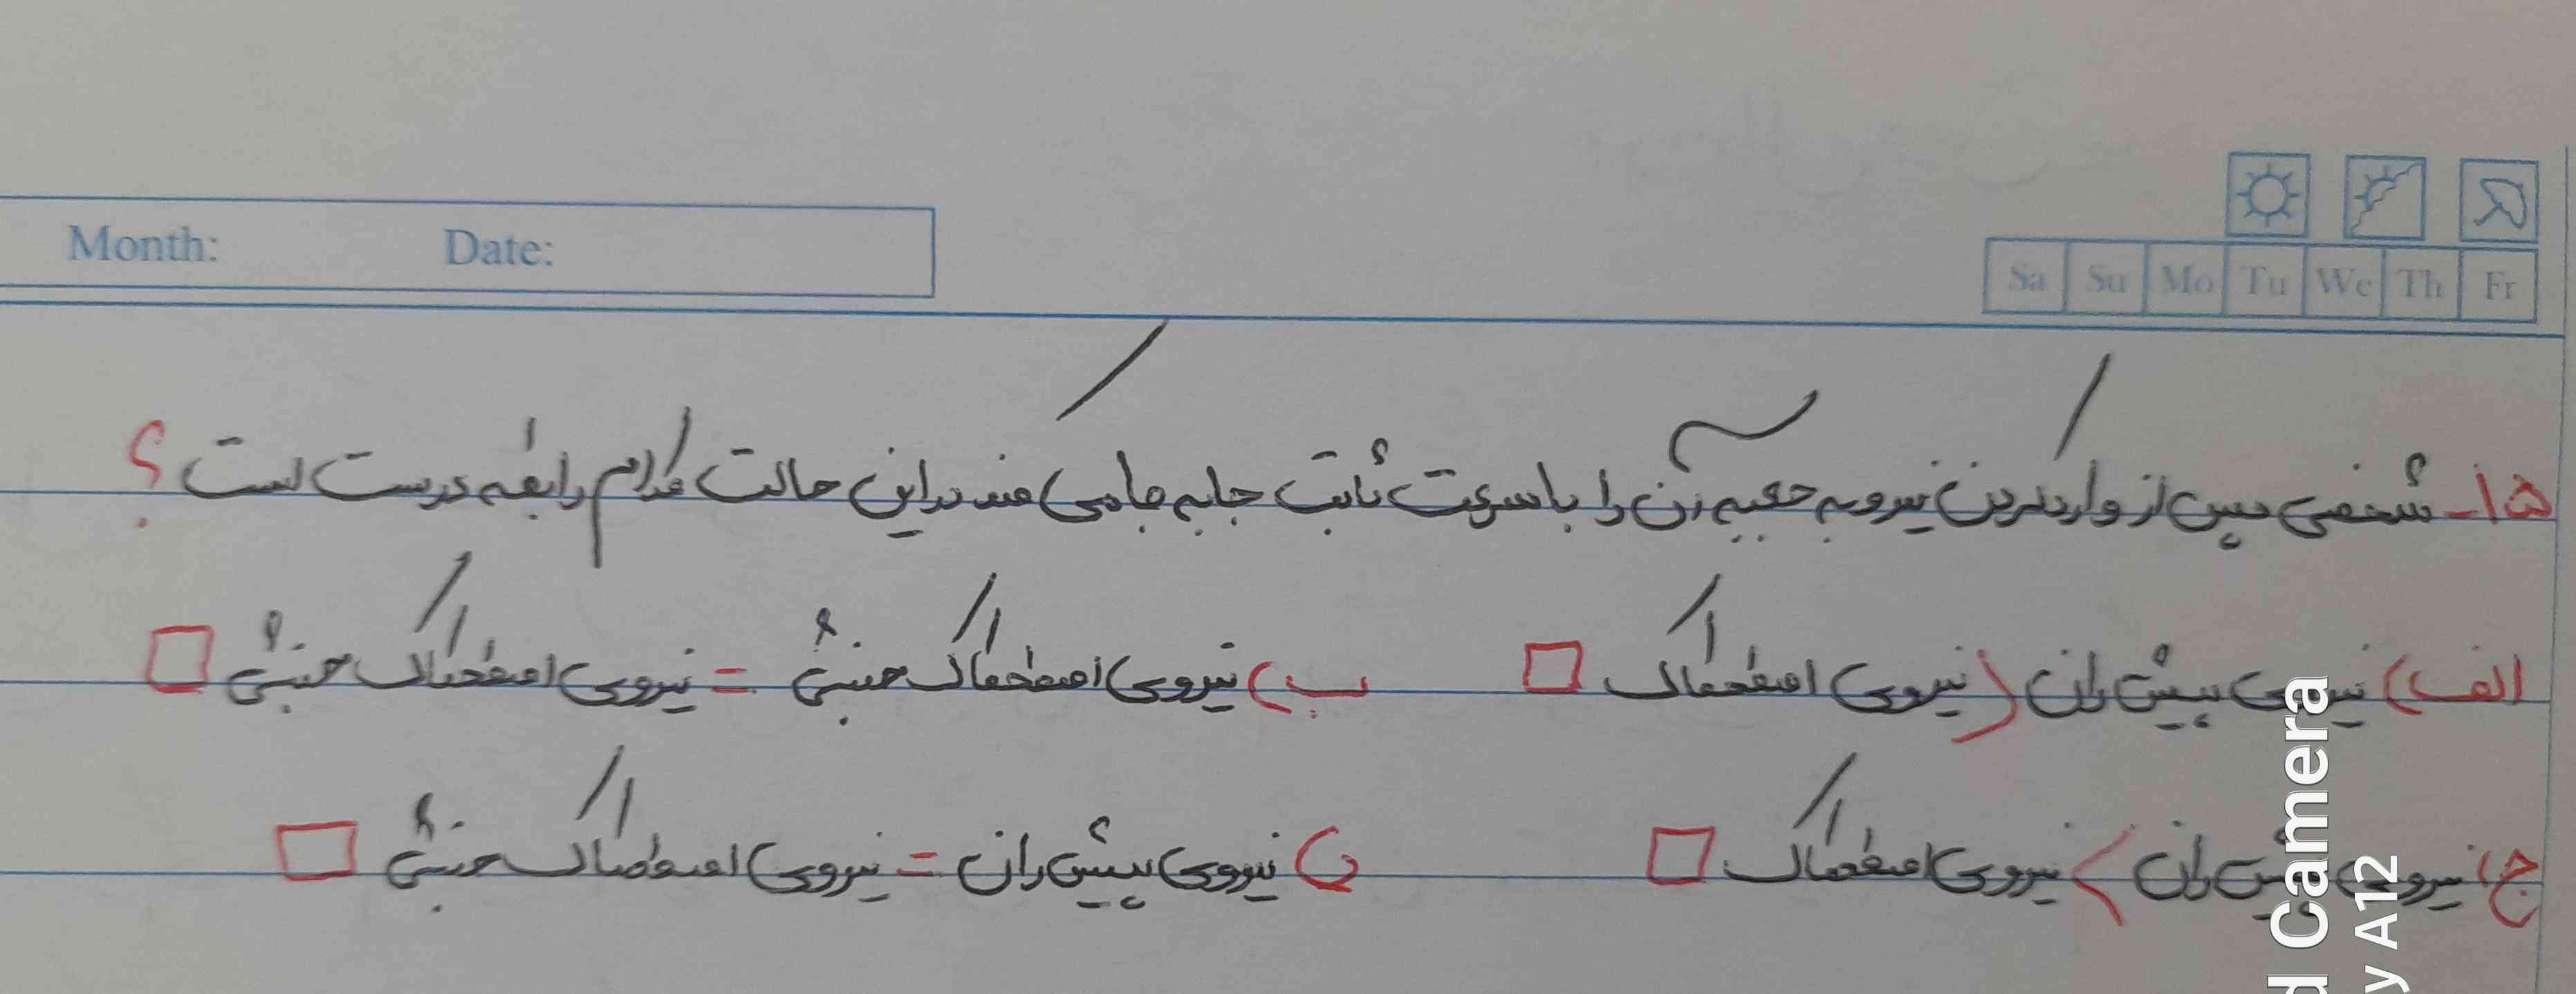 Month: Date:
Sa Su Mo Tu We Th Fr
۱۵- شخصی پس از وارد کردن نیرو به جعبه آن را با سرعت ثابت جابه جا می کند در این حالت کدام رابطه درست است ؟
الف) نیروی پیش ران ( نیروی اصطحکاک □ ب) نیروی اصطحکاک جنبشی = نیروی اصطحکاک جنبشی □
ج) نیروی پیش ران > نیروی اصطحکاک □ د) نیروی پیش ران = نیروی اصطحکاک جنبشی □
d Camera
y A12